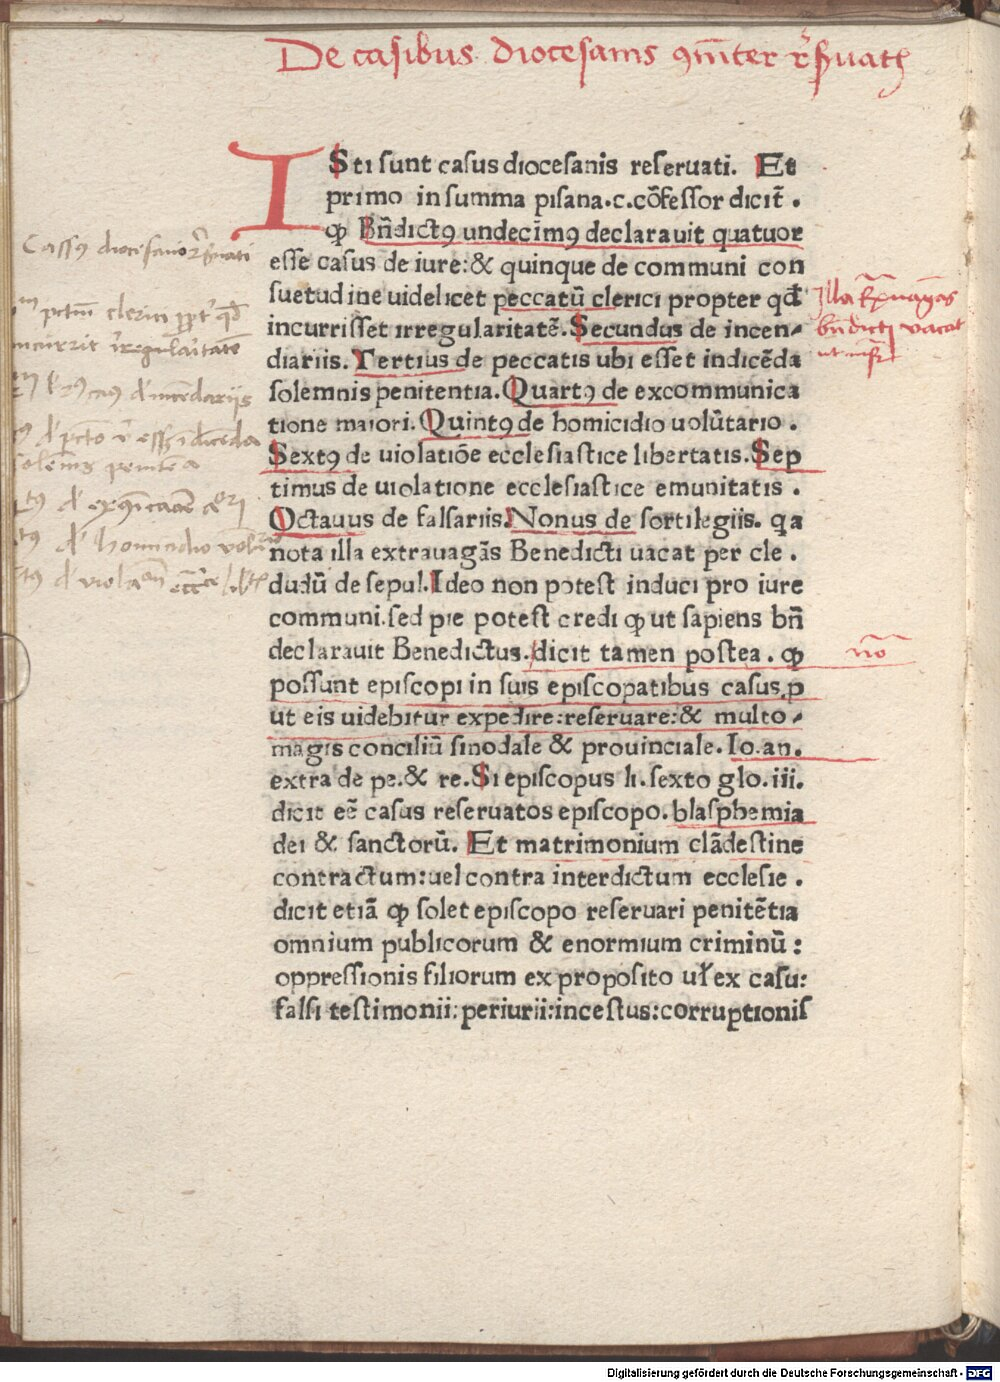 De casibus diocesanis
ISti sunt casus diocesanis reseruati. Et
primo in summa pisana.c.cōfessor dicit̄.
ꝙ Bn̄dictꝯ undecīmꝯ declarauit quatuor
esse casus de iure:& quinque de communi con
suetudine uidelicet peccatū clerici propter qd̄
incurrisset irregularitatē. Secundus de incen-
diariis. Tertius de peccatis ubi esset indicēda
solemnis penitentia. Quartꝯ de excommunica
tione maiori. Quintꝯ de homicidio uolūtario.
Sextꝯ de uiolatiōe ecclesiastice libertatis. Sep
timus de uiolatione ecclesiastice emunitatis.
Octauus de falsariis. Nonus de sortilegiis. qa
nota illa extrauagās Benedicti uacat per cle.
dudū de sepul. Ideo non potest induci pro iure
communi. sed pie potest credi ꝙ ut sapiens bn̄
declarauit Benedictus. dicit tamen postea. ꝙ
possunt episcopi in suis episcopatibus casus, p
ut eis uidebitur expedire:reseruare:& multo-
magis conciliū sinodale & prouinciale. Io.an.
extra de pe.& re. Si episcopus li. sexto glo.iii.
dicit eē casus reseruatos episcopo. blasphemia
dei & sanctorū. Et matrimonium clādestine
contractum:uel contra interdictum ecclesie.
dicit etiā ꝙ solet episcopo reseruari penitētia
omnium publicorum & enormium criminū:
oppressionis filiorum ex proposito uł ex casu:
falsi testimonii: periurii:incestus:corruptionis
bn̄dicti vacat
Digitalisierung gefördert durch die Deutsche Forschungsgemeinschaft - DFG